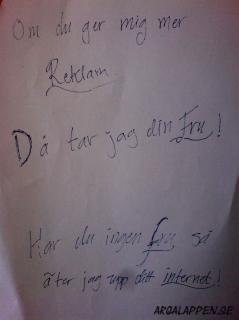 Om du ger mig mer
Reklam
Då tar jag din Fru!
Har du ingen fru, så
äter jag upp ditt internet!
ARGALAPPEN.SE